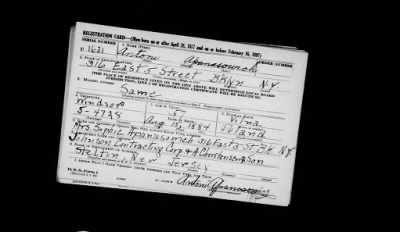 REGISTRATION CARD—(Men born on or after April 28, 1877 and on or before February 16, 1897)
SERIAL NUMBER 1. NAME (Print) ORDER NUMBER
U 1631 Antoni Apanasowich
316 East 5 Street BKlyn N.Y.
(THE PLACE OF RESIDENCE GIVEN ON THE LINE ABOVE WILL DETERMINE LOCAL BOARD
JURISDICTION; LINE 2 OF REGISTRATION CERTIFICATE WILL BE IDENTICAL)
3. MAILING ADDRESS
Same
Windsor 57 Vilna
5-4738 Aug 15, 1884 Poland
Mrs Sophie Apanasowich 316 East 5 St BK NY
Johnson Contracting Corp & A Son
Stelton New Jersey
D. S. S. Form 1 Antoni Apanasowicz